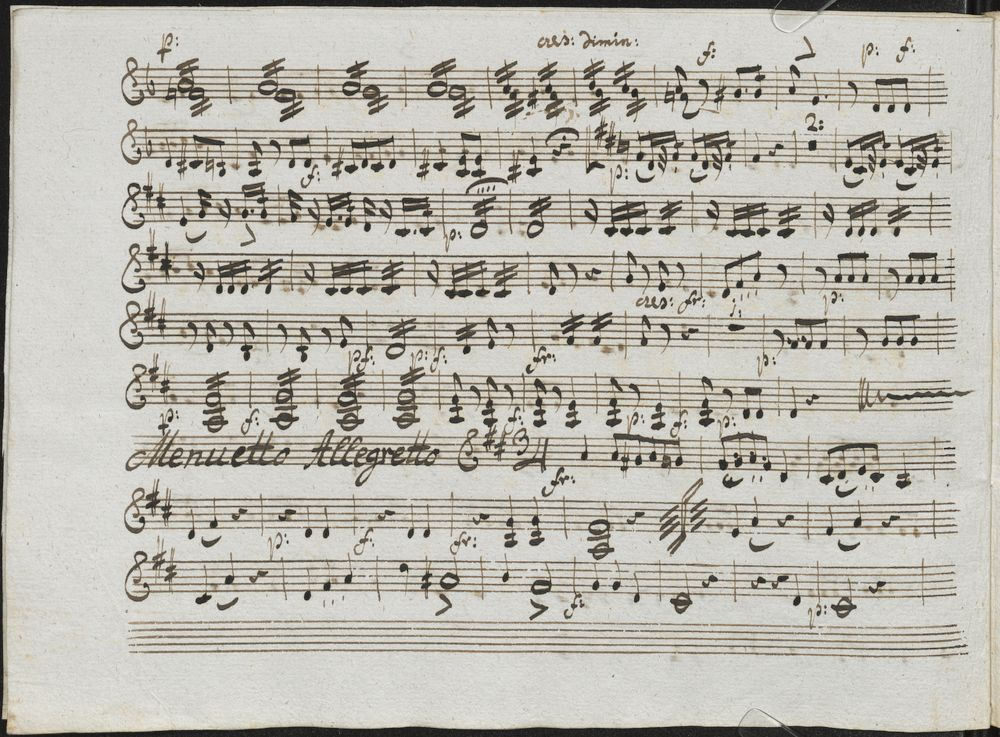 p: cres: dimin: f: p: f:
f: p: 2:
p:
cres: fr: p:
pf: p: f: fr: p:
p: f: f: p: f:
Menuetto Allegretto 3/4 fr:
p: f: fr:
f: p: